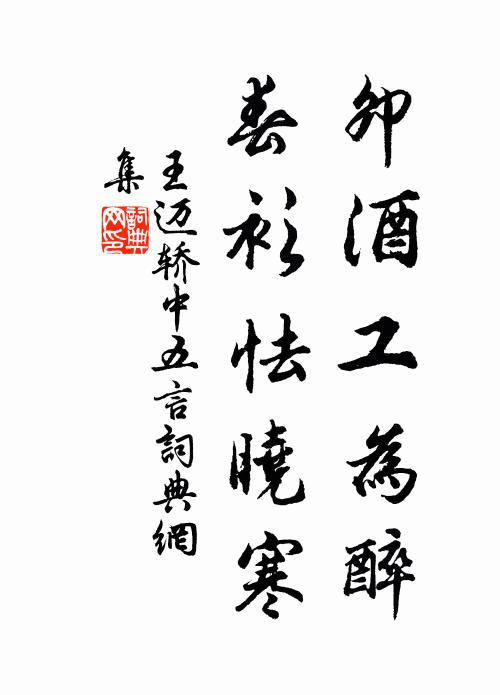 卯酒工為醉
春衫怯曉寒
王迈轿中五言詞典網
集
詞典
网印